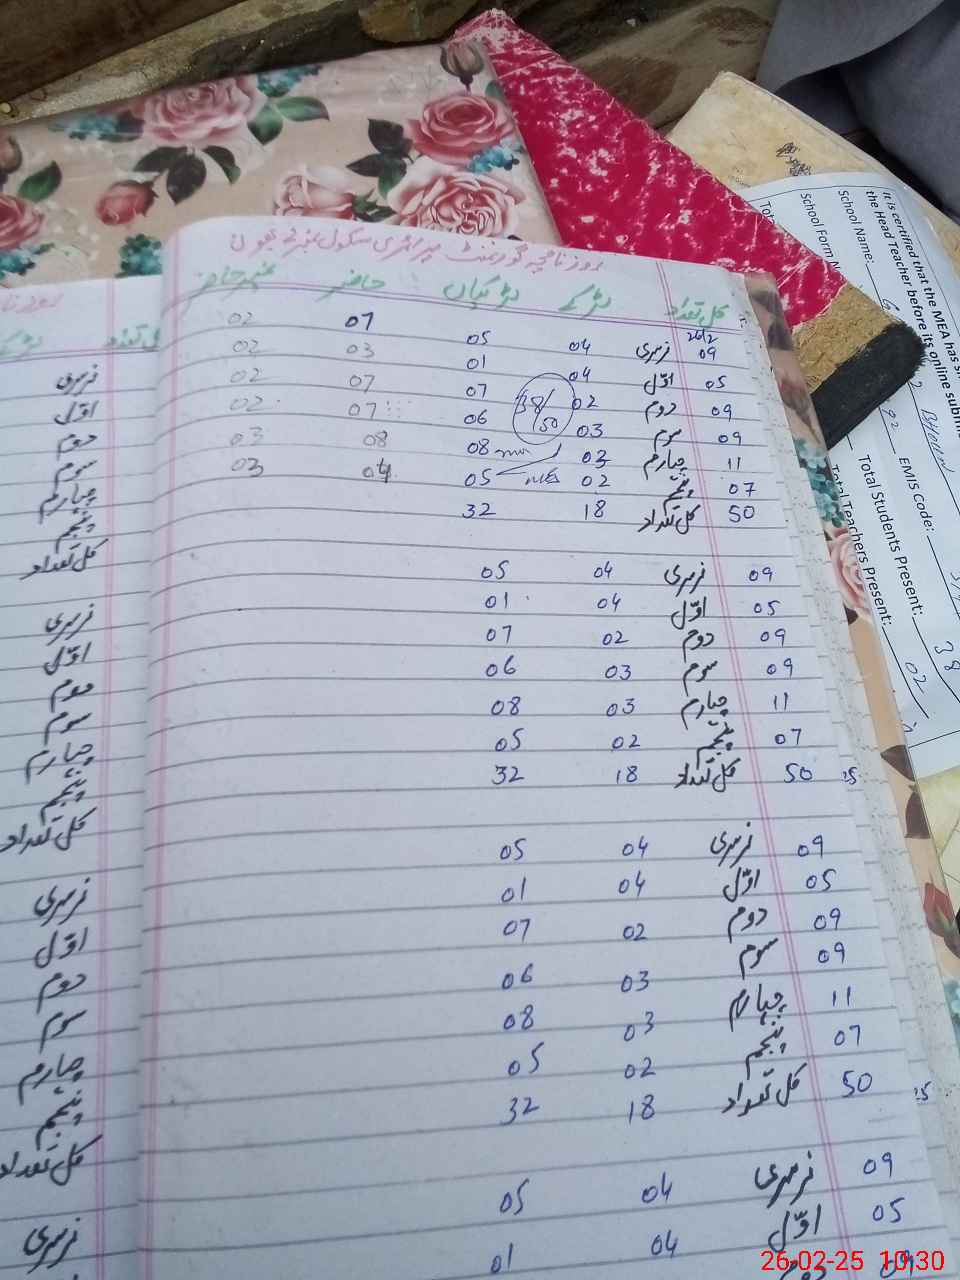 روزنامچہ گورنمنٹ پرائمری سکول نمبر 2 بھون
کل تعداد لڑکے لڑکیاں حاضر غیر حاضر
26/2
09 نرسری 04 05 07 02
05 اوّل 04 01 03 02
09 دوم 02 07 07 02
09 سوم 03 06 07 02
11 چہارم 03 08 08 03
07 پنجم 02 05 04 03
50 کل تعداد 18 32
38/50
MEA
09 نرسری 04 05
05 اوّل 04 01
09 دوم 02 07
09 سوم 03 06
11 چہارم 03 08
07 پنجم 02 05
50 کل تعداد 18 32
09 نرسری 04 05
05 اوّل 04 01
09 دوم 02 07
09 سوم 03 06
11 چہارم 03 08
07 پنجم 02 05
50 کل تعداد 18 32
09 نرسری 04 05
05 اوّل 04 01
09 دوم
نرسری
اوّل
دوم
سوم
چہارم
پنجم
کل تعداد
نرسری
اوّل
دوم
سوم
چہارم
پنجم
کل تعداد
نرسری
اوّل
دوم
سوم
چہارم
پنجم
کل تعداد
نرسری
It is certified that the MEA has
the Head Teacher before its online
School Name: BHOUN
School Form
EMIS Code:
Total Students Present: 38
Total Teachers Present: 02
26-02-25 10:30